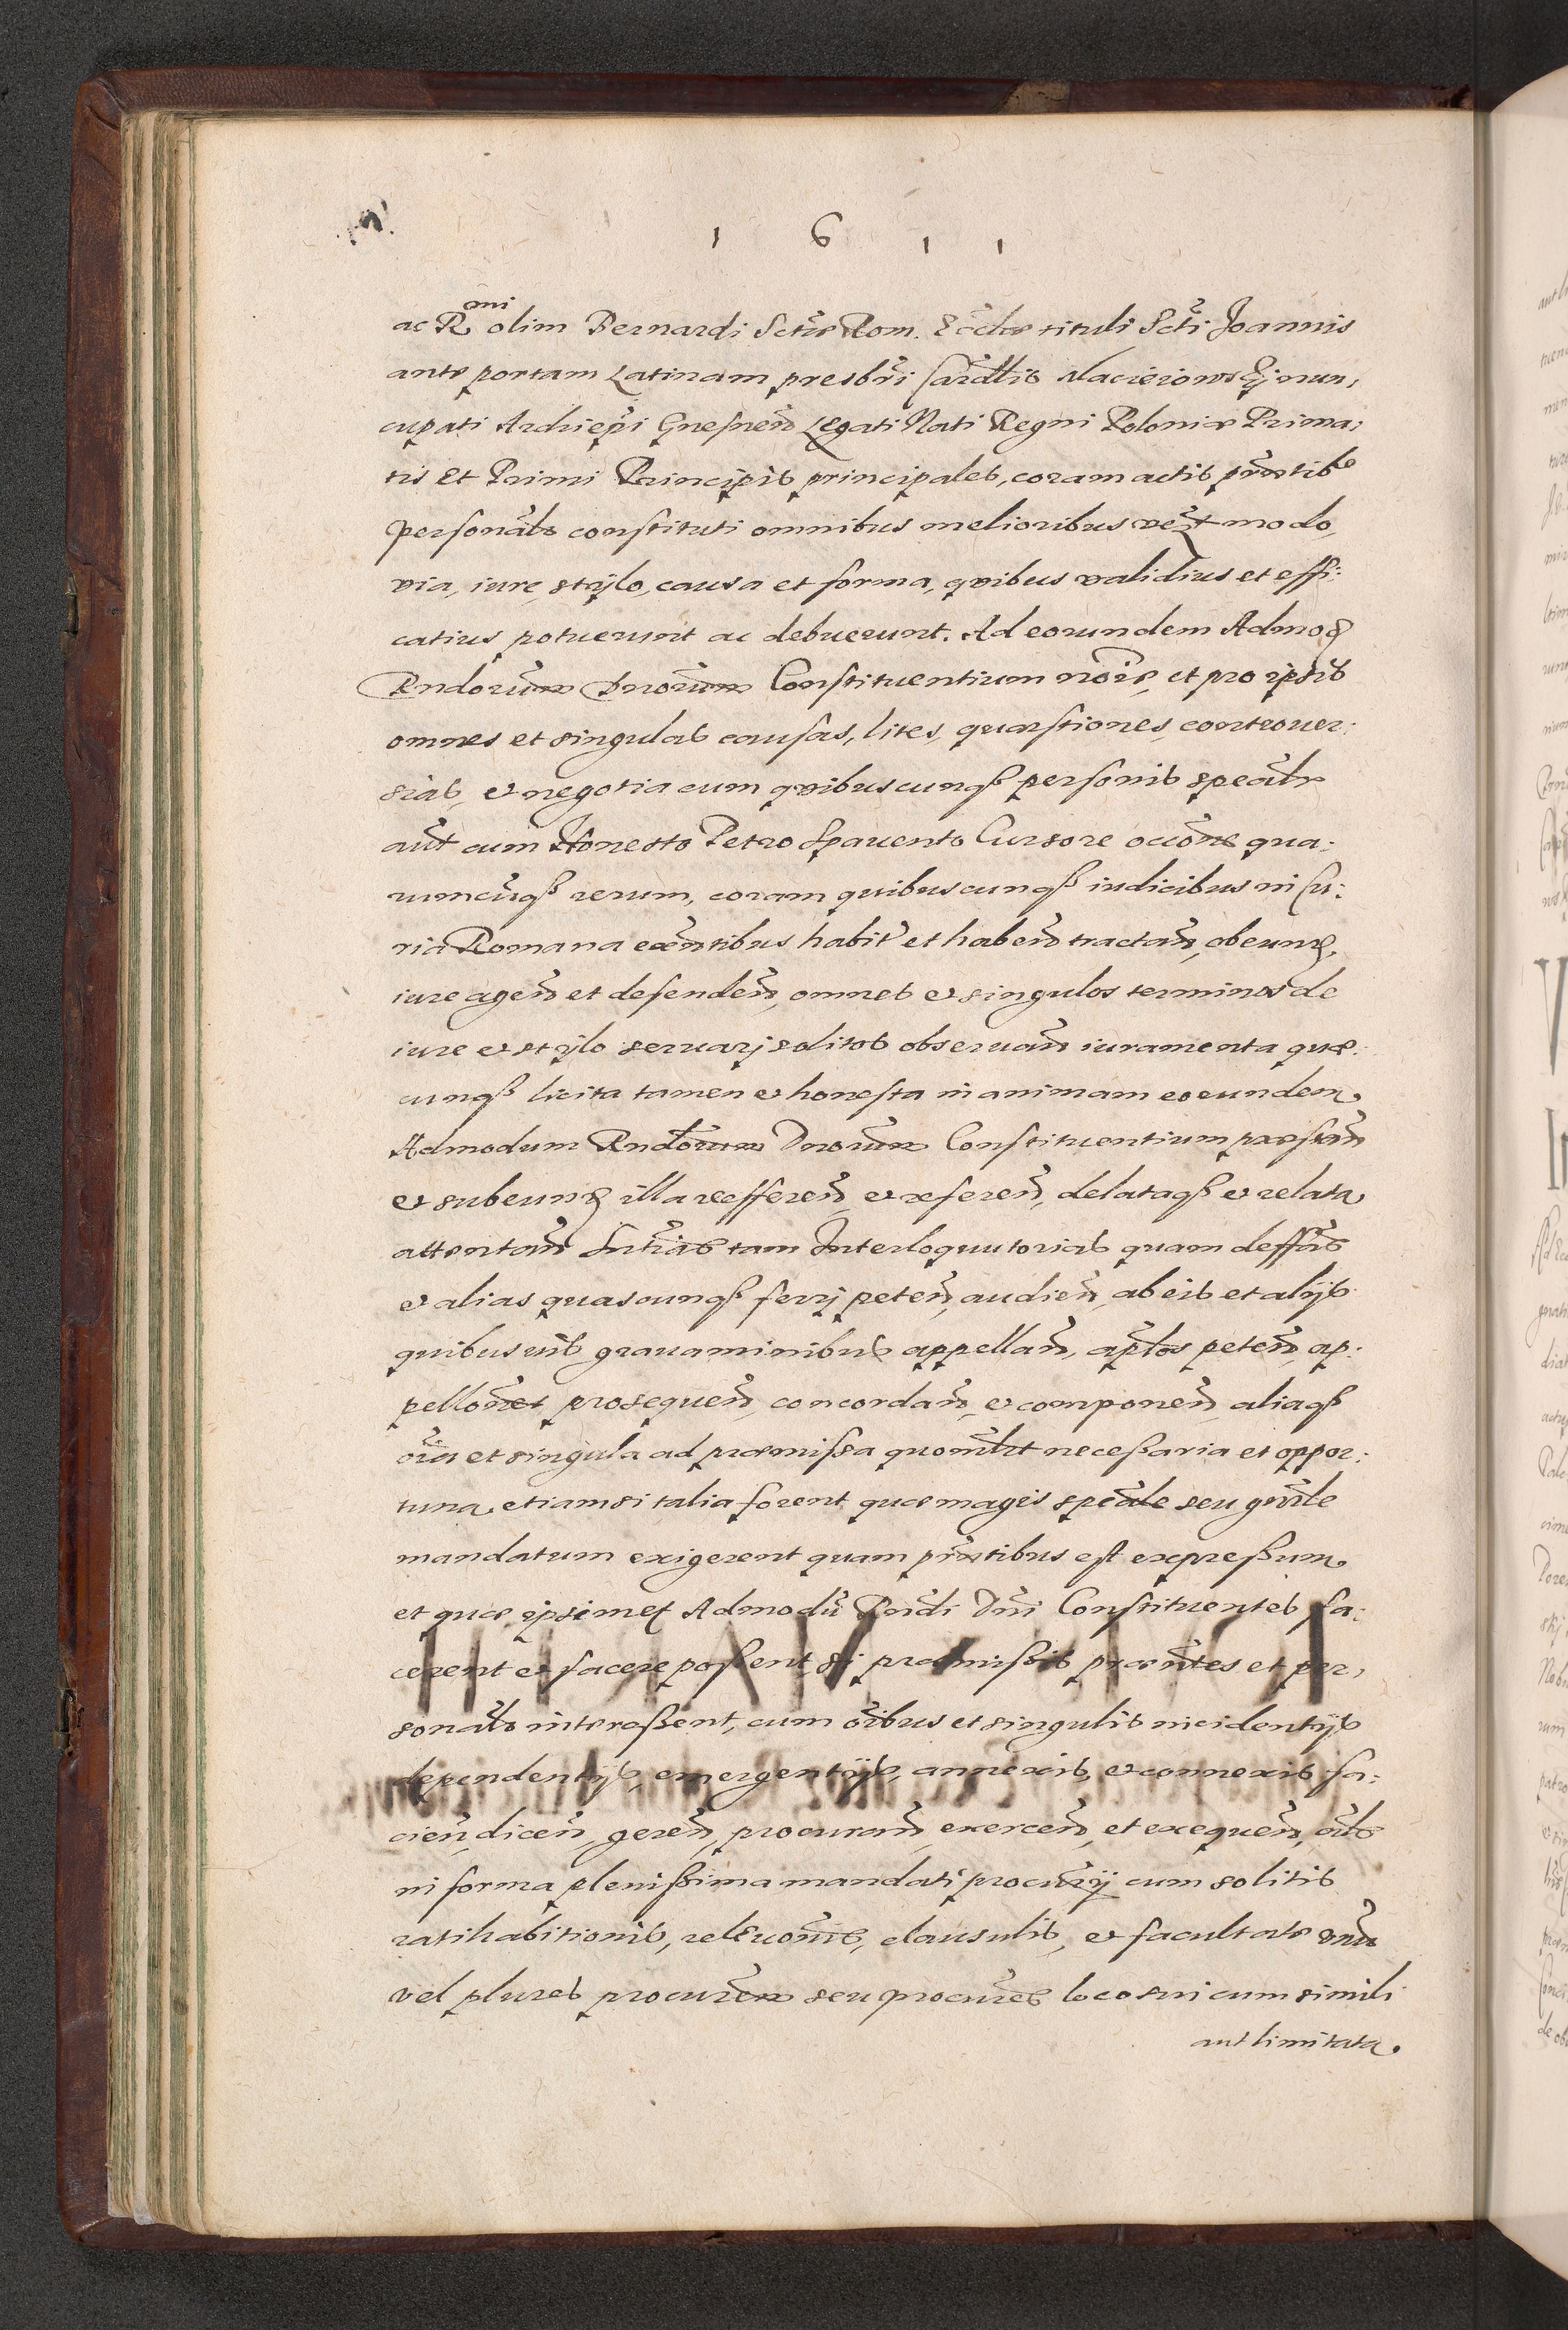 1 6 1 1
ac R.mi olim Bernardi Sctæ Rom. Eccłæ tituli Scti Joannis
ante portam Latinam presbri Cardlis Macieiowskij nun,
cupati Archiepi Gnesnen Legati Nati Regni Poloniæ Prima,
tis Et Primi Principis principales, coram actis prntibs
personalr constituti omnibus melioribus modo,
via, iure, stylo, causa et forma, quibus validius et effi:
catius potuerunt ac debuerunt. Ad eorundem Admod
Rndorum Dnorum Constituentium noie, et pro ipsis
omnes et singulas causas, lites, quæstiones, controuer:
sias, et negotia cum quibuscunq personis spealr
aut cum Honesto Petro Spauento Cursore ocione qua:
rumcunq rerum, coram quibuscunq iudicibus in Cu:
ria Romana exentibus habit et haben tractan, obeund,
iure agen et defenden, omnes et singulos terminos de
iure et stylo seruarj solitos obseruan iuramenta quæ:
cunq licita tamen et honesta in animam eorundem
Admodum Rndorum Dnorum Constituentium præstan
et subeund illa refferen, et referen, delataq et relata
attentan Sntias tam Interloquutorias quam deffas
et alias quascunq ferrj peten, audien, ab eis et alijs
quibusuis grauaminibus appellan, aplos peten, ap:
pellones prosequen, concordan, et componen, aliaq
oia et singula ad præmissa quomlt necessaria et oppor:
tuna, etiamsi talia forent quæ magis speale seu gnrale
mandatum exigerent quam prntibus est expressum
et quæ ipsimet Admodu Rndi Dni Constituentes fa:
cerent et facere possent si præmissis præntes et per,
sonalr interessent, cum oibus et singulis incidentijs
dependentijs, emergentijs, annexis, et connexis fa:
cien, dicen, geren, procuran, exercen, et exequen,
in forma plenissima mandati procurij cum solitis
ratihabitionis, releuonis, clausulis, et facultate unu
vel plures procurem seu procures loco sui cum simili
aut limitata.